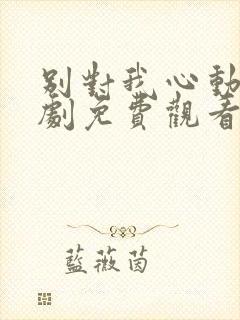 別對我心動
劇免費觀看
藍薇茵